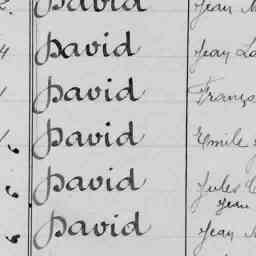 David Jean
4 David Jean
David
David Emile
David Jules
Jean
David Jean